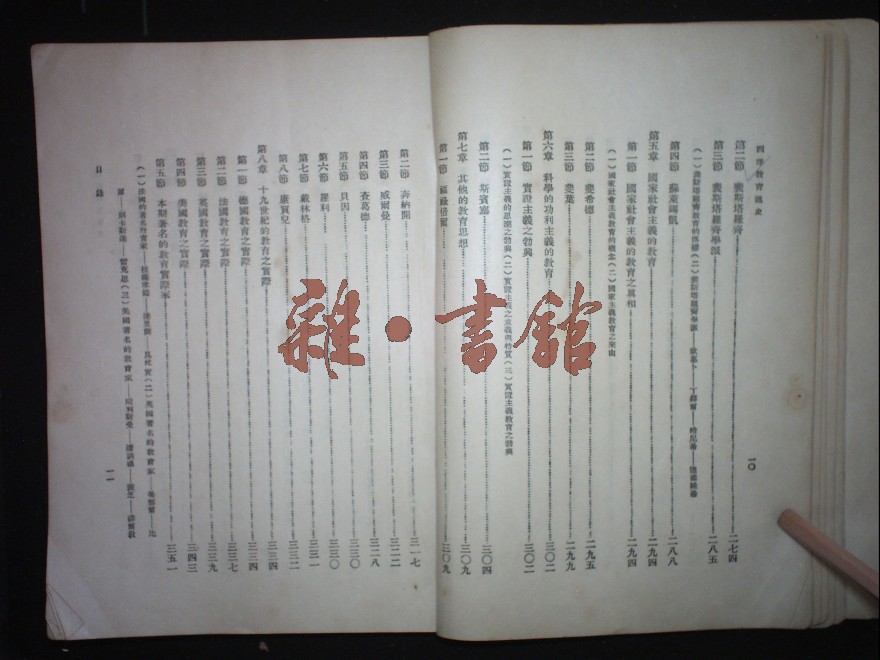 西洋教育通史
第二節 裴斯塔羅齊……二七四
第三節 裴斯塔羅齊學派……二八五
第四節 ……二八八
第五章 國家社會主義的教育……二九四
第一節 國家社會主義的教育之真相……二九四
(一)國家社會主義教育的概念(二)國家主義教育之來由
第二節 斐希德……二九五
第三節 斐葉……二九九
第六章 科學的功利主義的教育……三〇二
第一節 實證主義之勃興……三〇二
(一)實證主義的思潮之勃興(二)實證主義之意義與特質(三)實證主義教育之勃興
第二節 斯賓塞……三〇四
第七章 其他的教育思想……三〇九
第一節 ……三〇九
一〇
第二節 ……三一七
第三節 威爾曼……三二二
第四節 ……三二八
第五節 貝因……三三〇
第六節 羅利……三三〇
第七節 戴林格……三三一
第八節 康賓兒……三三二
第八章 十九世紀的教育之實際……三三四
第一節 德國教育之實際……三三四
第二節 法國教育之實際……三三七
第三節 英國教育之實際……三三九
第四節 美國教育之實際……三四三
第五節 本期著名的教育實際家……三五一
(一)法國的著名的教育家(二)英國著名的教育家
(三)美國著名的教育家
目錄
一一
雜·書館